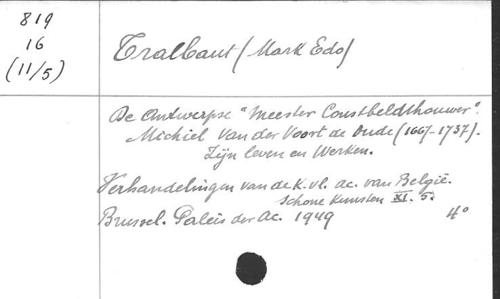 819
16
(11/5)
Tralbaut (Mark Edo)
De Antwerpse "Meester Constbeldthouwer".
Michiel Van der Voort de Oude (1667-1737).
Zijn leven en Werken.
Verhandelingen van de K. vl. ac. van België.
Schone Kunsten XI. 5.
Brussel. Paleis der Ac. 1949 4°